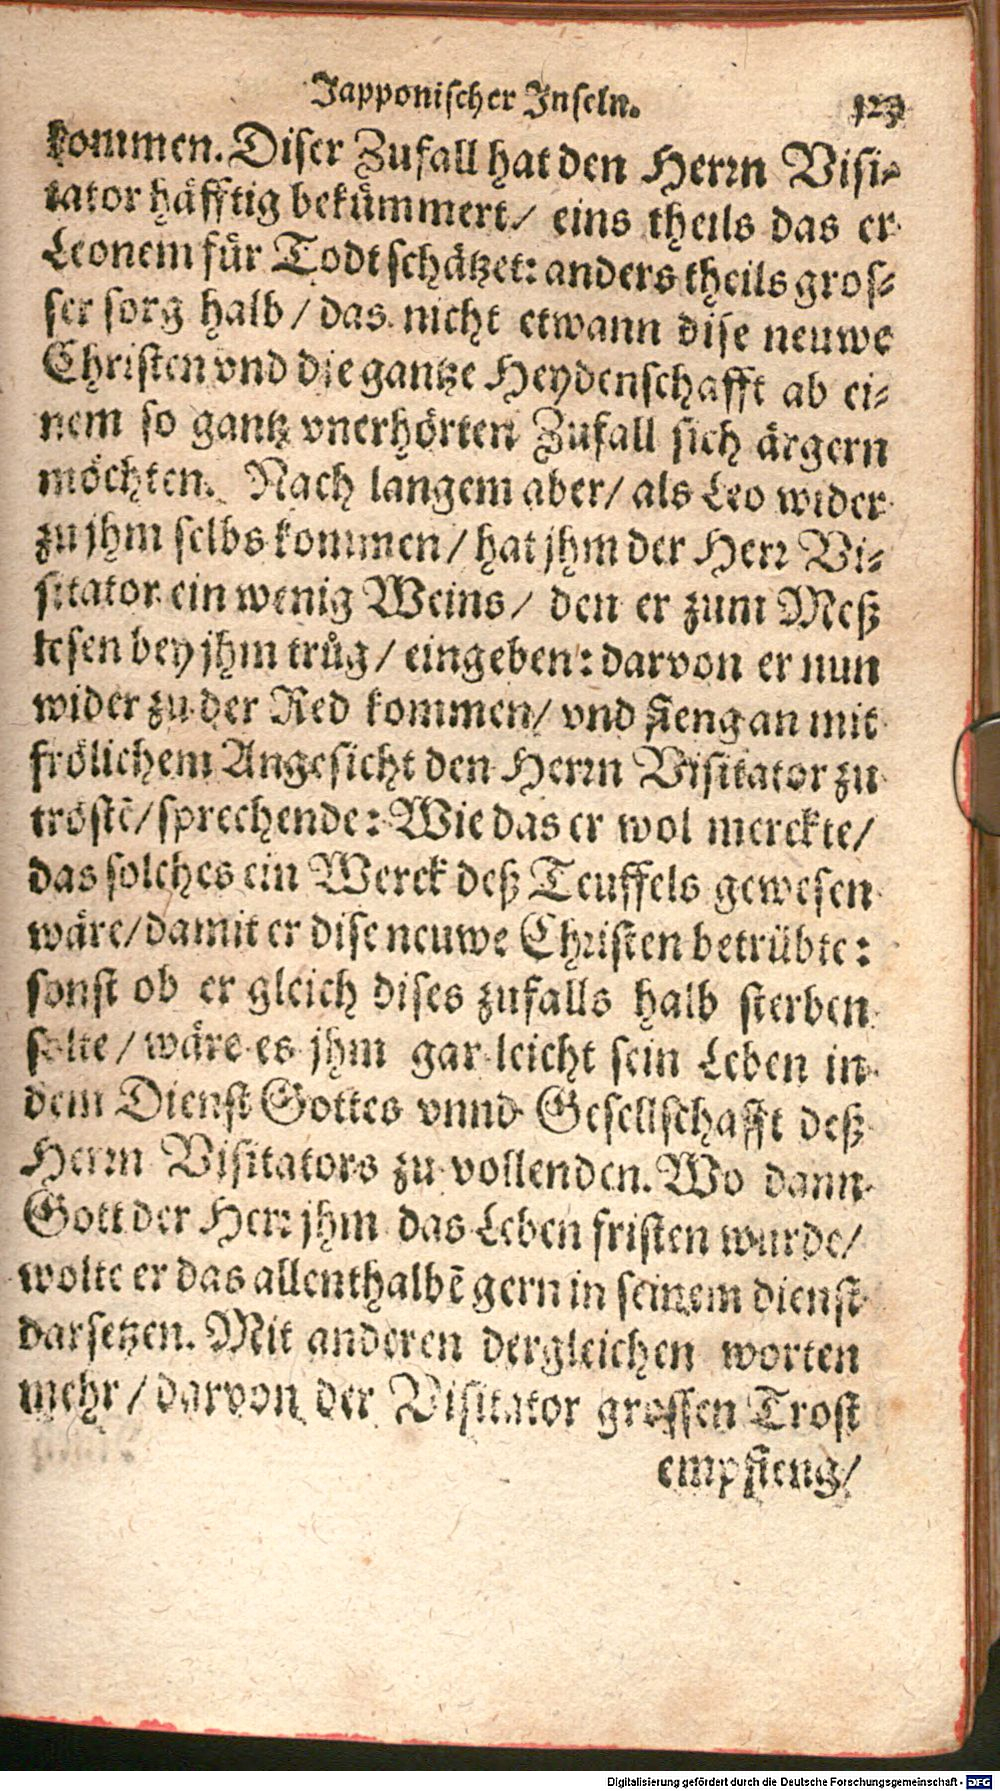 Japponischer Inseln. 123
kommen. Diser Zufall hat den Herrn Visi-
tator häfftig bekümmert/ eins theils das er
Leonem für Todt schätzet: anders theils gros-
ser sorg halb/ das nicht etwann dise neuwe
Christen vnd die gantze Heydenschafft ab ei-
nem so gantz vnerhörten Zufall sich ärgern
möchten. Nach langem aber/ als Leo wider
zu jhm selbs kommen/ hat jhm der Herr Vi-
sitator ein wenig Weins/ den er zum Meß
lesen bey jhm trůg/ eingeben: darvon er nun
wider zu der Red kommen/ vnd fieng an mit
frölichem Angesicht den Herrn Visitator zu
tröstē/ sprechende: Wie das er wol merckte/
das solches ein Werck deß Teuffels gewesen
wäre/ damit er dise neuwe Christen betrübte:
sonst ob er gleich dises zufalls halb sterben
solte/ wäre es jhm gar leicht sein Leben in
dem Dienst Gottes vnnd Gesellschafft deß
Herrn Visitators zu vollenden. Wo dann
Gott der Herr jhm das Leben fristen wurde/
wolte er das allenthalbē gern in seinem dienst
darsetzen. Mit anderen dergleichen worten
mehr/ darvon der Visitator grossen Trost
empfieng/
Digitalisierung gefördert durch die Deutsche Forschungsgemeinschaft - DFG